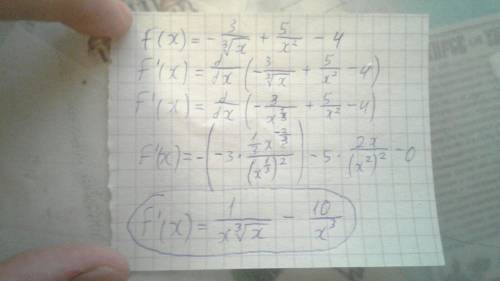 F(x) = - 3/∛x + 5/x² - 4
F'(x) = d/dx (- 3/∛x + 5/x² - 4)
F'(x) = d/dx (- 3/x^(1/3) + 5/x² - 4)
F'(x) = - (-3 · (1/3 x^(-2/3))/(x^(1/3))²) - 5 · 2x/(x²)² - 0
F'(x) = 1/(x∛x) - 10/x³